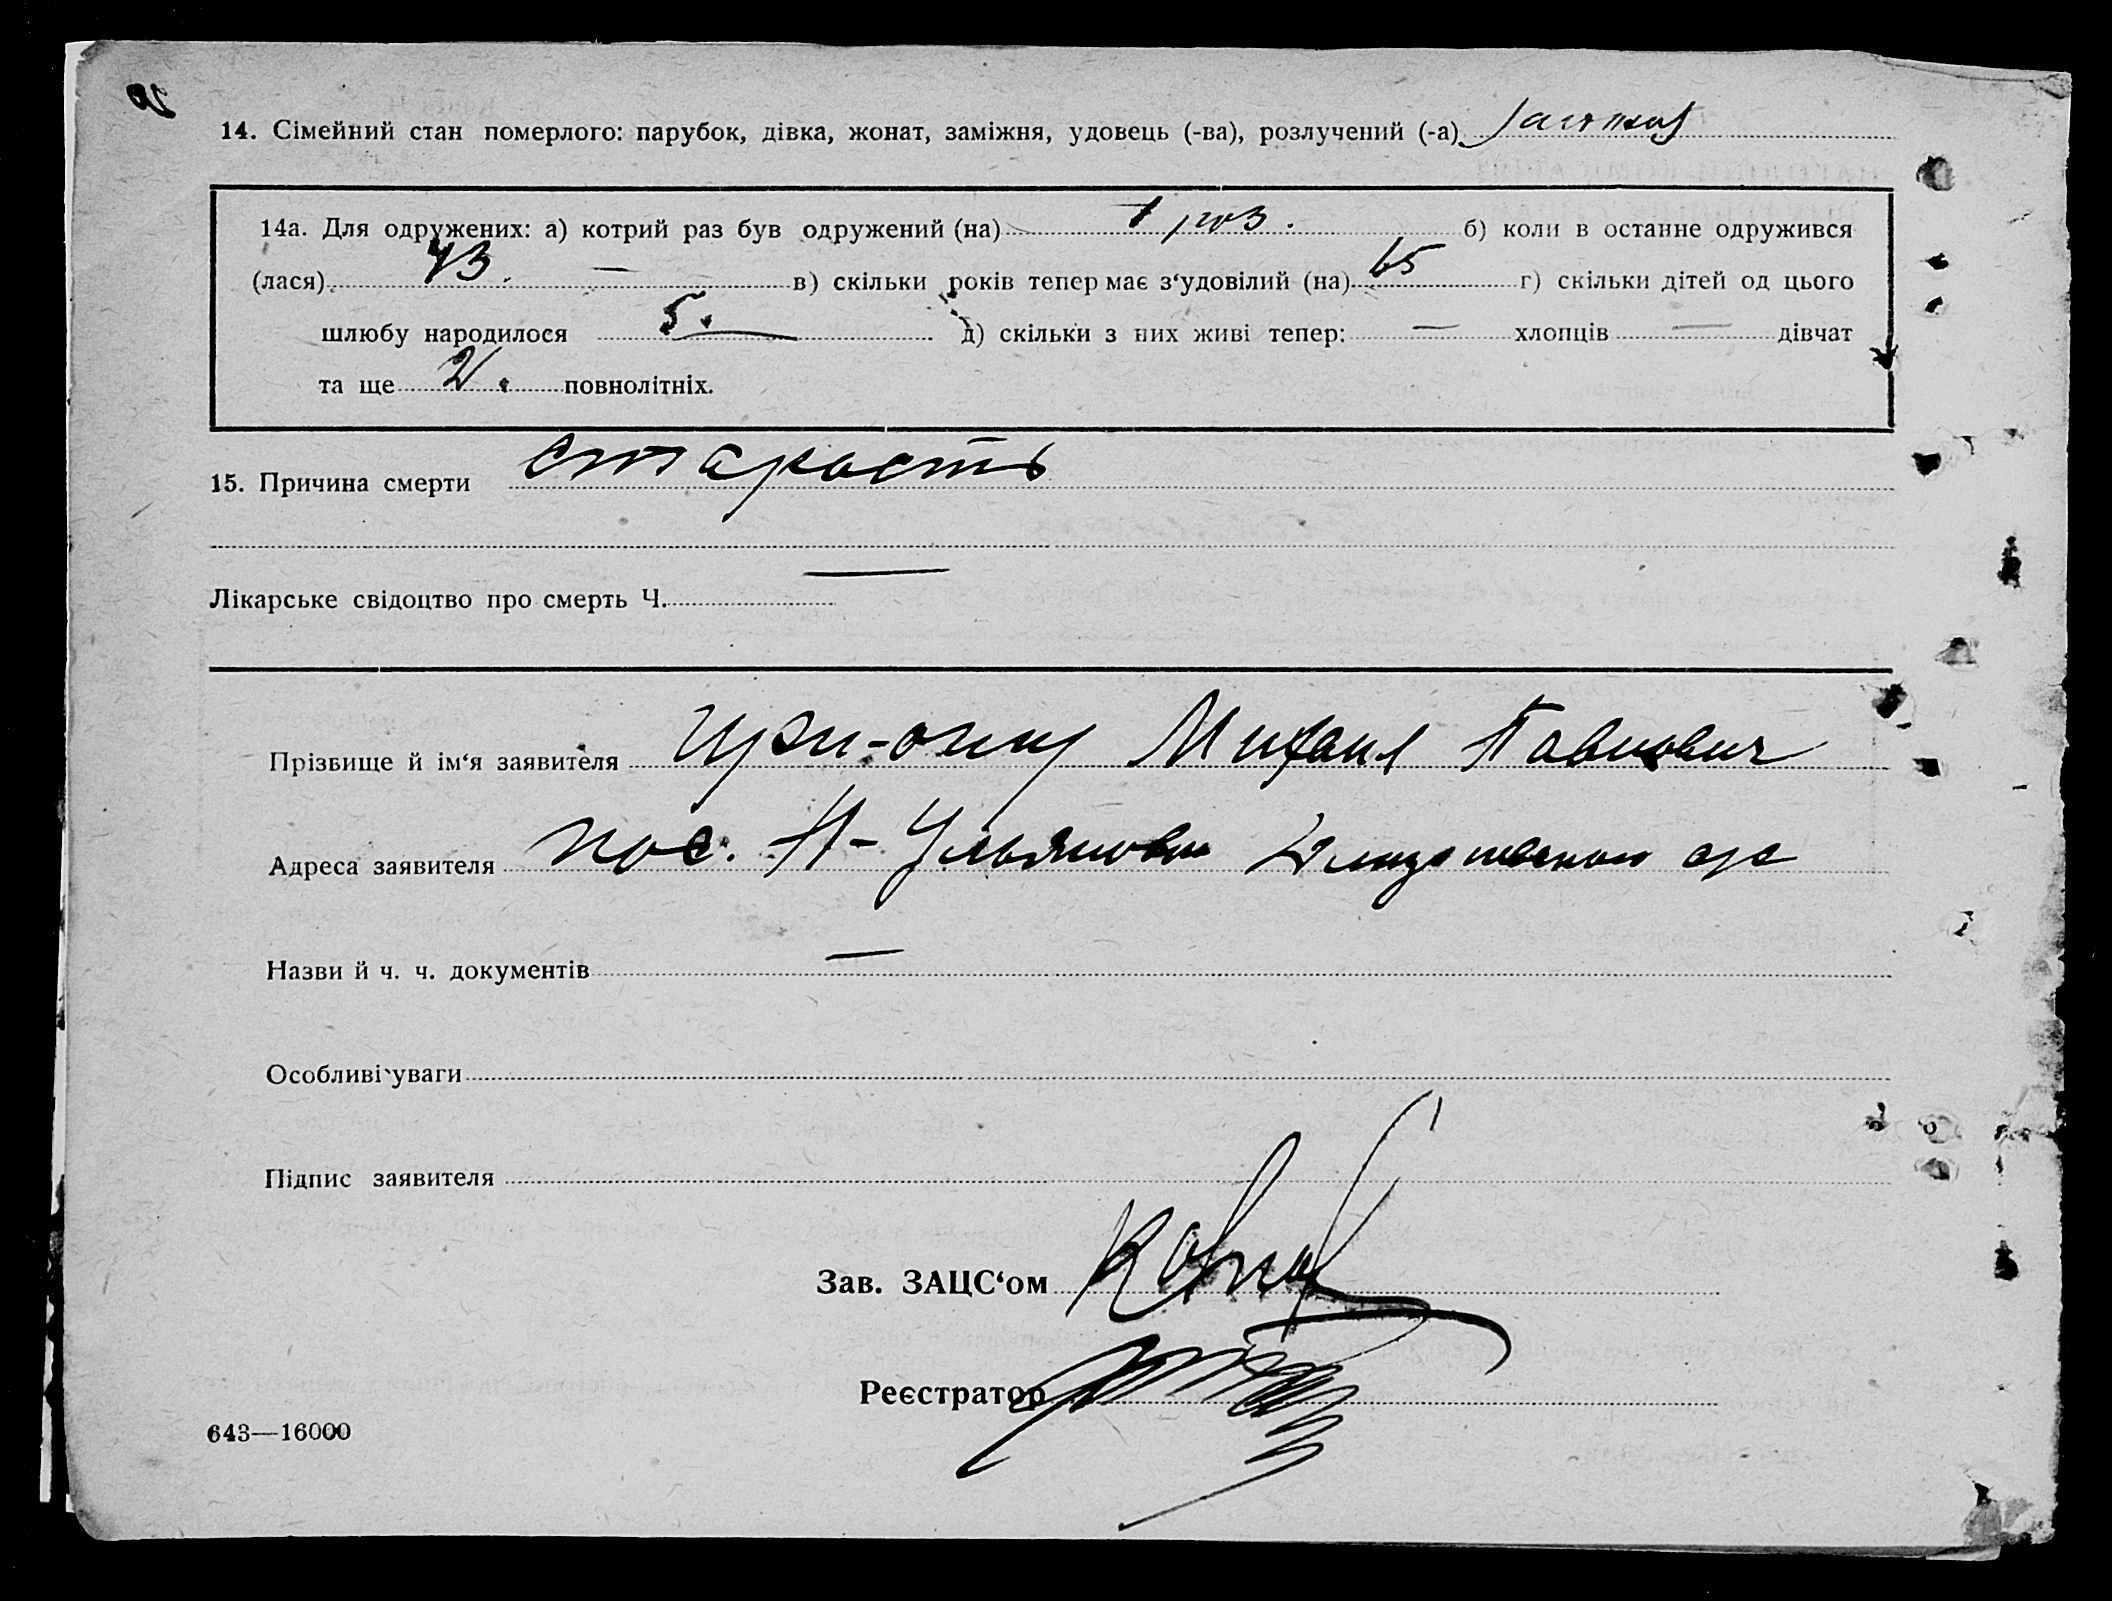 14. Сімейний стан померлого: парубок, дівка, жонат, заміжня, удовець (-ва), розлучений (-а)
14а. Для одружених: а) котрий раз був одружений (на) 1 раз. б) коли в останне одружився
(лася) 43. — в) скільки років тепер має з‘удовілий (на) 65 г) скільки дітей од цього
шлюбу народилося 5. — д) скільки з них живі тепер: — хлопців — дівчат
та ще 2. повнолітніх.
15. Причина смерти старость
Лікарське свідоцтво про смерть Ч. —
Прізвище й ім‘я заявителя Михаил Павлович
Адреса заявителя пос. Н-Ульяновка
Назви й ч. ч. документів —
Особливі уваги
Підпис заявителя
Зав. ЗАЦС‘ом
Реєстратор
643—16000